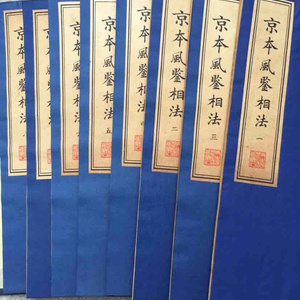 京本風鑒相法 一
京本風鑒相法 三
京本風鑒相法 二
京本風鑒相法
京本風鑒相法 五
京本風鑒相法
京本風鑒相法
京本風鑒相